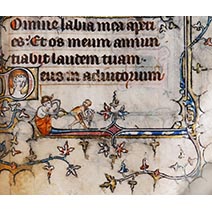 Domine labia mea aperi
es: Et os meum annun
tiabit laudem tuam
eus in adiutorium